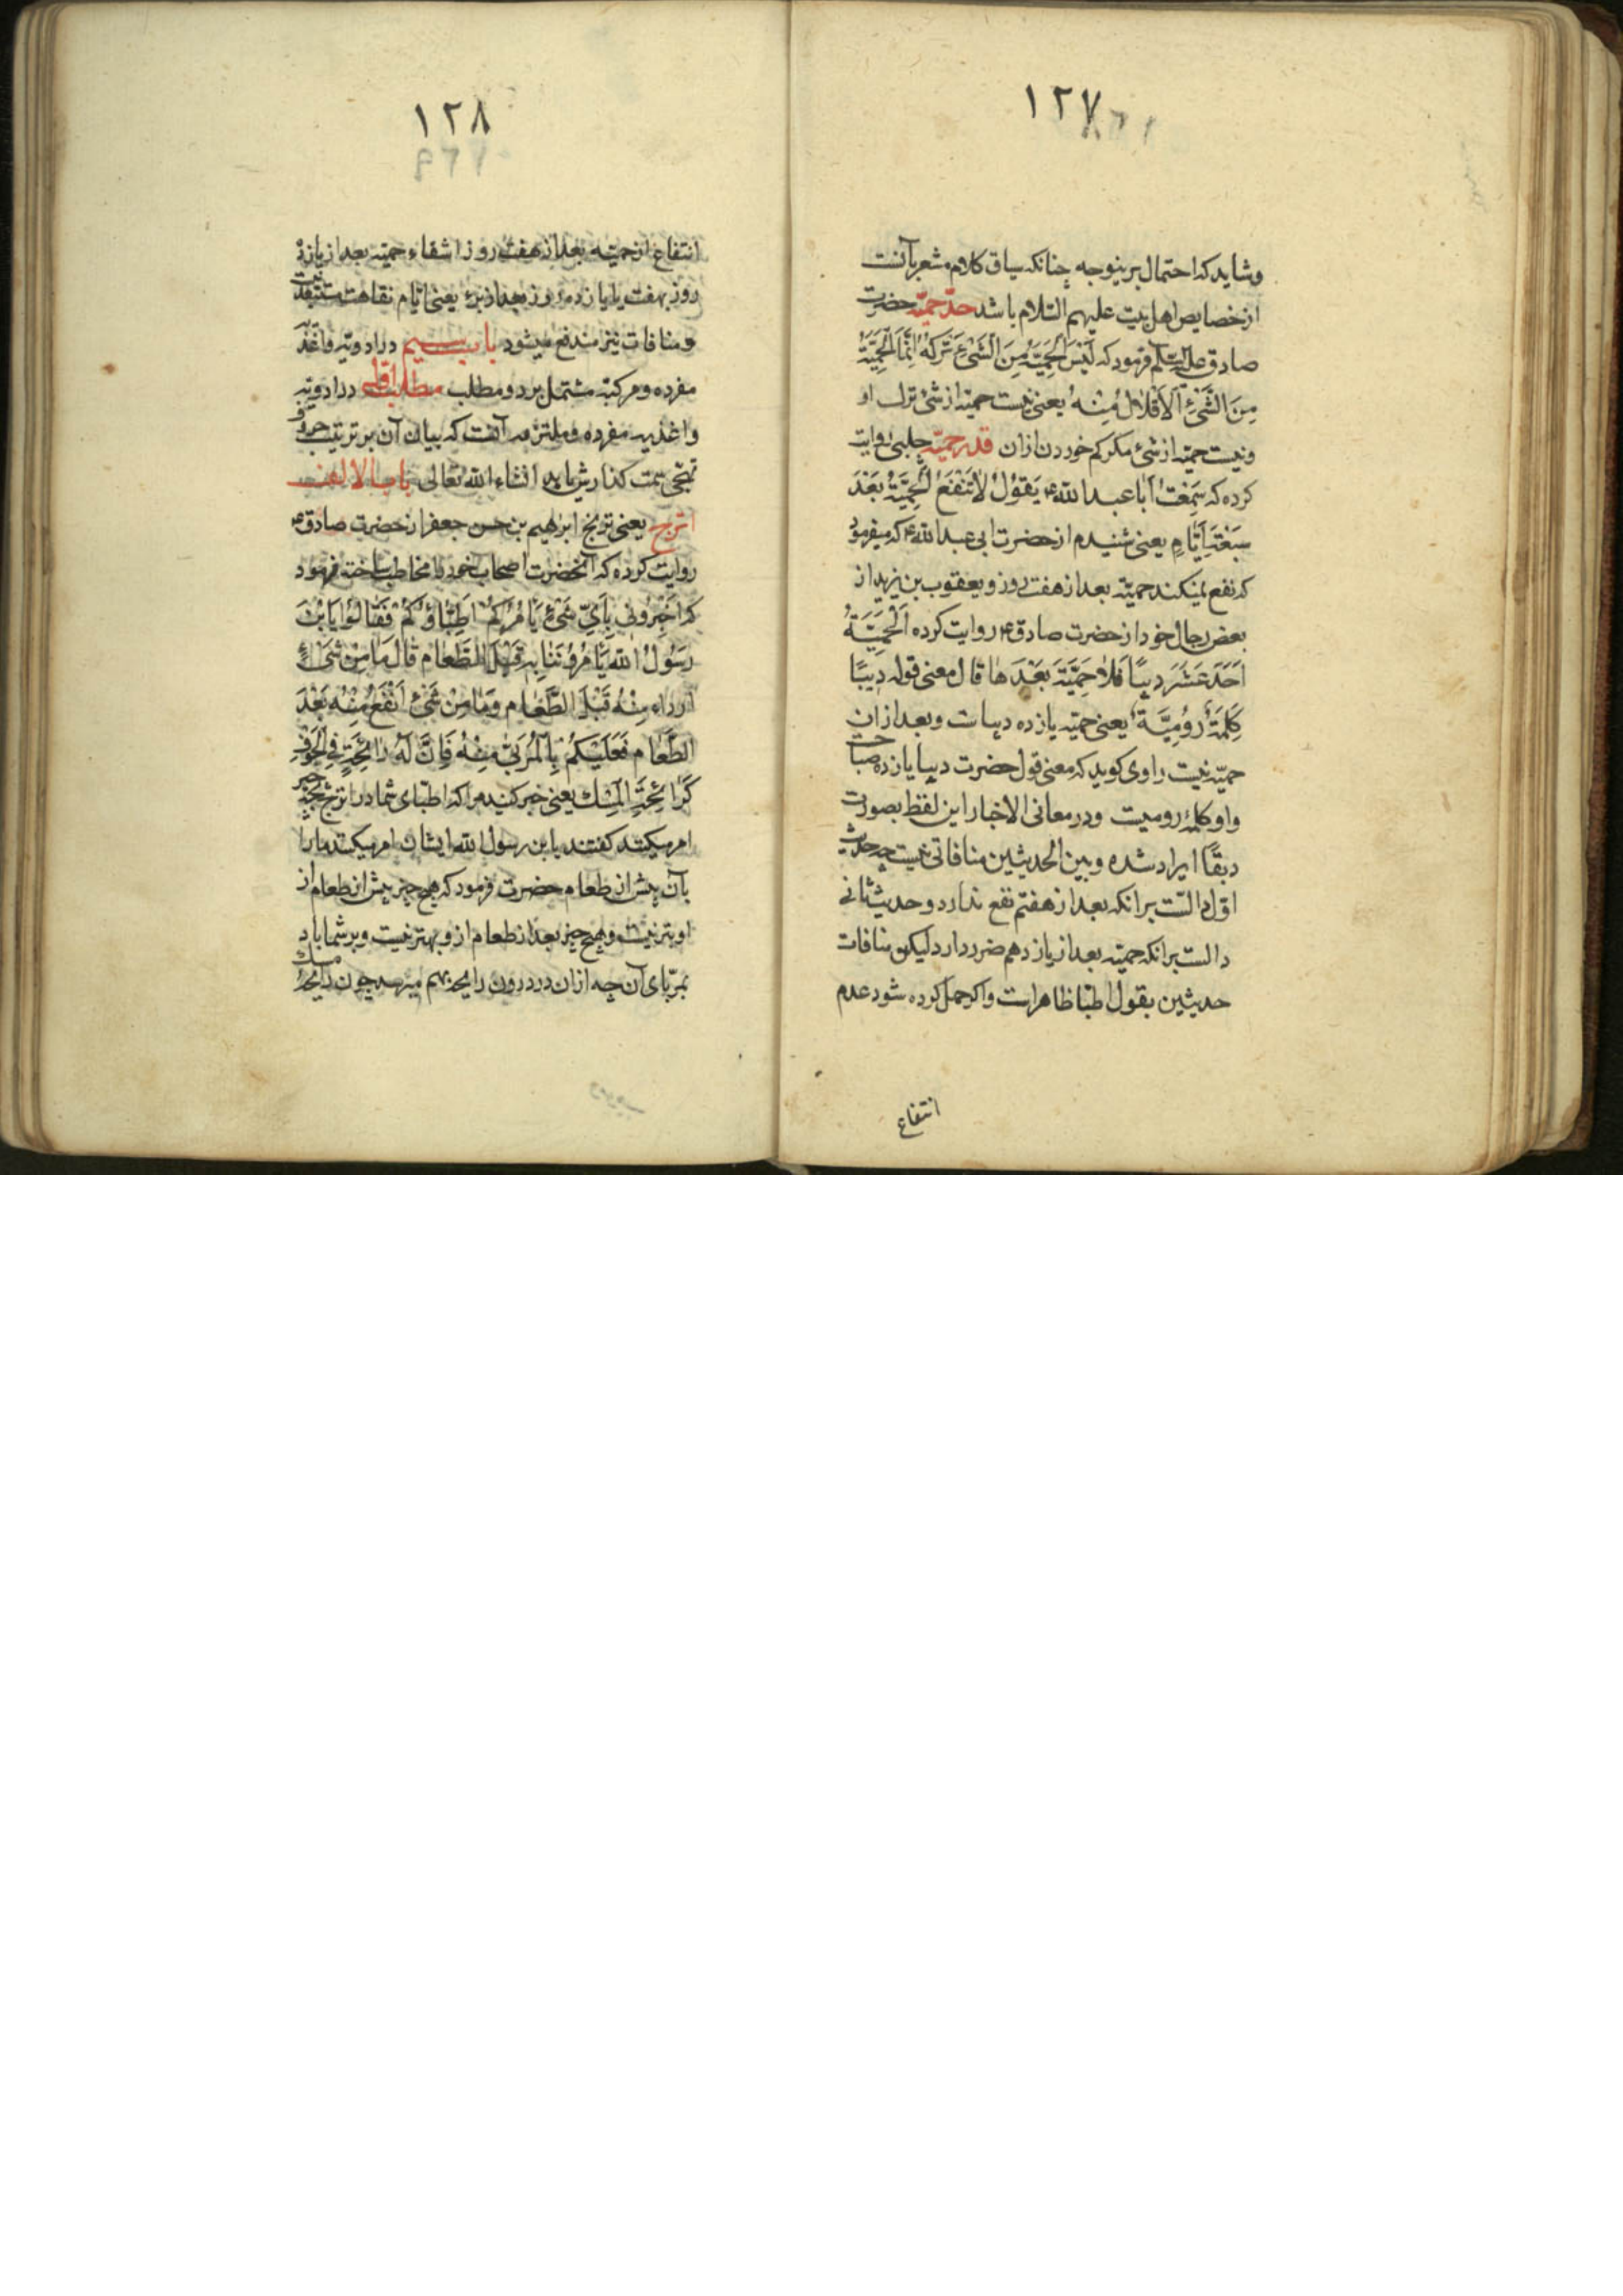 ١٢٧
وشاید که احتمال برینوجه چنانکه سیاق کلام مشعر بآنست
از خصایص اهل بیت علیهم السّلام باشد حدّ حمیّه حضرت
صادق علیه السّلم فرمود که لَیْسَ الْحِمْیَةُ مِنَ الشَّیْءِ تَرْکَهُ اِنَّمَا الْحِمْیَةُ
مِنَ الشَّیْءِ اَلْاِقْلَالُ مِنْهُ یعنی نیست حمیّه از شئ ترک او
ونیست حمیّه از شئ مکر کم خوردن ازان قدر حمیّه حلبی روایت
کرده که سَمِعْتُ اَبَا عَبْدِ اللّه ع یَقُولُ لَا تَنْفَعُ الْحِمْیَةُ بَعْدَ
سَبْعَةِ اَیَّامٍ یعنی شنیدم از حضرت ابی عبد اللّه ع که میفرمود
که نفع نمیکند حمیّه بعد از هفت روز و یعقوب بن یزید از
بعض رجال خود از حضرت صادق ع روایت کرده اَلْحِمْیَةُ
اَحَدَ عَشَرَ دِیبًا فَلَا حِمْیَةَ بَعْدَهَا قال معنی قوله دِیبًا
کَلِمَةٌ رُومِیَّةٌ یعنی حمیّه یازده دیبا ست وبعد ازان
حمیّه نیست راوی کوید که معنی قول حضرت دیبا یازده صباحست
واو کلمهٔ رومیست ودر معانی الاخبار این لفظ بصورت
دبقًا ایراد شده وبین الحدیثین منافاتی نیست چه حدیث
اوّل دالّست برانکه بعد از هفتم نفع ندارد وحدیث ثانی
دالست برانکه حمیّه بعد از یازدهم ضرر دارد لیکن منافات
حدیثین بقول اطبّا ظاهر است واکر حمل کرده شود عدم
انتفاع
١٢٨
انتفاع از حمیّه بعد از هفت روز اشقاء حمیّه بعد از یازده
روز بهفت یا یازده روز بعد از برء یعنی ایّام نقاهت مستبعد نیست
ومنافات نیز مندفع میشود باب سیم در ادویّه واغذیه
مفرده ومرکبّه مشتمل بر دو مطلب مطلب اوّل در ادویّه
واغذیه مفرده وملتزم آنست که بیان آن بر ترتیب حروف
تهجّی سمت کذارش یابد انشاء اللّه تعالی باب الالف
اترج یعنی ترنج ابرهیم بن حسن جعفر از حضرت صادق ع
روایت کرده که آنحضرت اصحاب خود را مخاطب ساخته فرمود
که اَخْبِرُونِی بِاَیِّ شَیْءٍ یَامُرُکُمْ اَطِبَّاؤُکُمْ فَقَالُوا یَابْنَ
رَسُولِ اللّه یَامُرُونَنَا بِهِ قَبْلَ الطَّعَامِ قَالَ مَا مِنْ شَیْءٍ
اَرْدَاء مِنْهُ قَبْلَ الطَّعَامِ وَمَا مِنْ شَیْءٍ اَنْفَعُ مِنْهُ بَعْدَ
الطَّعَامِ فَعَلَیْکُمْ بِالْمُرَبَّی مِنْهُ فَاِنَّ لَهُ رَائِحَةً فِی الْجَوْفِ
کَرَائِحَةِ الْمِسْکِ یعنی خبر کنید مرا که اطبّای شما در اترج بچه چیز
امر میکنند کفتند یا بن رسول اللّه ایشان امر میکنند مارا
بآن پیش از طعام حضرت فرمود که هیچ چیز پیش از طعام از
او بتر نیست وهیچ چیز بعد از طعام ازو بهتر نیست وبر شما باد
بمربّای آن چه ازان در درون رایحه بهم میرسد چون رایحهٔ مسک